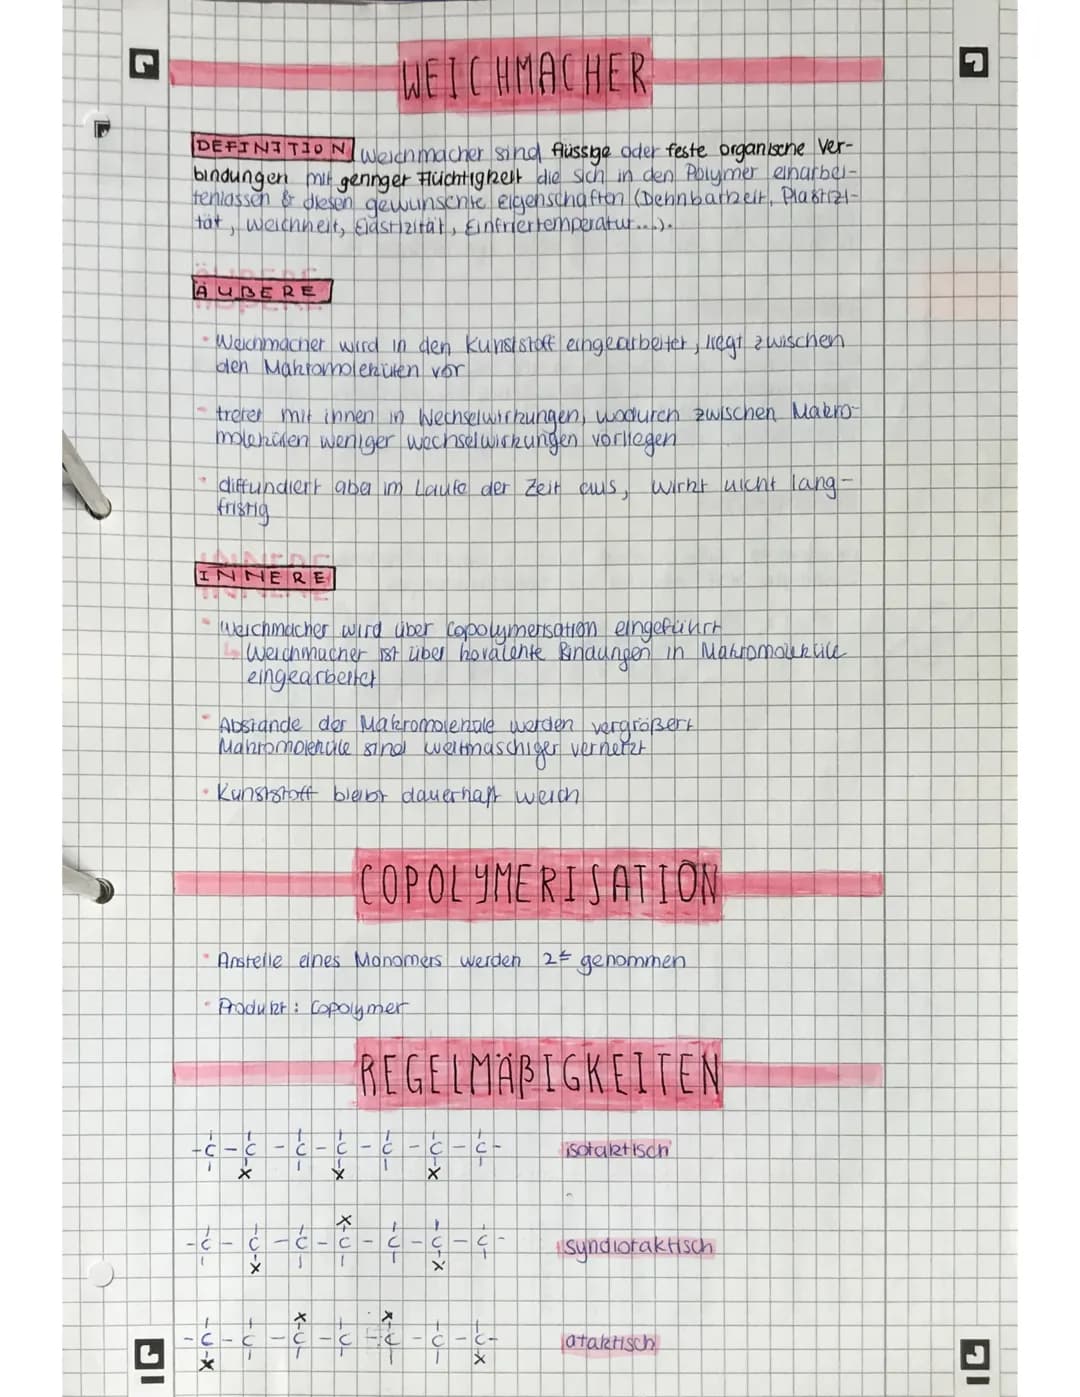 WEICHMACHER
DEFINITION Weichmacher sind flüssige oder feste organische Ver-
bindungen mit geringer Flüchtigkeit die sich in den Polymer einarbei-
tenlassen & diesen gewünschte Eigenschaften (Dehnbarkeit, Plastizi-
tät, Weichheit, Elastizität, Einfriertemperatur...).
ÄUßERE
• Weichmacher wird in den Kunststoff eingearbeitet, liegt zwischen
den Makromolekülen vor
• tretet mit ihnen in Wechselwirkungen, wodurch zwischen Makro-
molekülen weniger Wechselwirkungen vorliegen
• diffundiert aber im Laufe der Zeit aus, wirkt nicht lang-
fristig
INNERE
• Weichmacher wird über Copolymerisation eingeführt
↳ Weichmacher ist über kovalente Bindungen in Makromoleküle
eingearbeitet
• Abstände der Makromoleküle werden vergrößert
Makromoleküle sind weitmaschiger vernetzt
• Kunststoff bleibt dauerhaft weich
COPOLYMERISATION
• Anstelle eines Monomers werden 2≠ genommen
• Produkt: Copolymer
REGELMÄßIGKEITEN
-C-C-C-C-C-C-C- isotaktisch
X X X
X
-C-C-C-C-C-C-C- syndiotaktisch
X X
X X
-C-C-C-C-C-C-C- ataktisch
X X